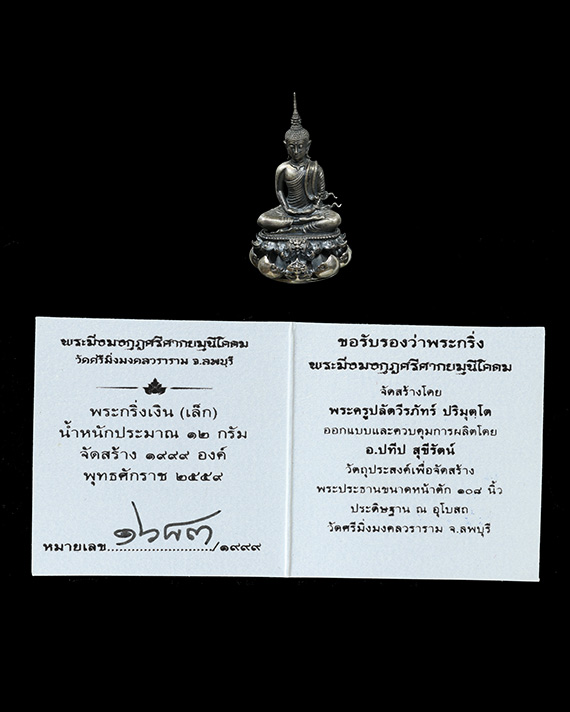 พระมิ่งมงกุฎศรีศากยมุนีโคดม
วัดศรีมิ่งมงคลวราราม จ.ลพบุรี
พระกริ่งเงิน (เล็ก)
น้ำหนักประมาณ ๑๒ กรัม
จัดสร้าง ๑๙๙๙ องค์
พุทธศักราช ๒๕๕๙
หมายเลข............................/๑๙๙๙
ขอรับรองว่าพระกริ่ง
พระมิ่งมงกุฎศรีศากยมุนีโคดม
จัดสร้างโดย
พระครูปลัดวีรภัทร์ ปริมุตฺโต
ออกแบบและควบคุมการผลิตโดย
อ.ปทีป สุชีรัตน์
วัตถุประสงค์เพื่อจัดสร้าง
พระประธานขนาดหน้าตัก ๑๐๘ นิ้ว
ประดิษฐาน ณ อุโบสถ
วัดศรีมิ่งมงคลวราราม จ.ลพบุรี